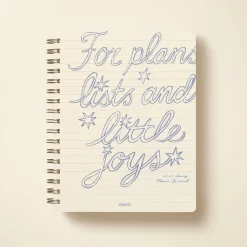 For plans
lists and
little
joys